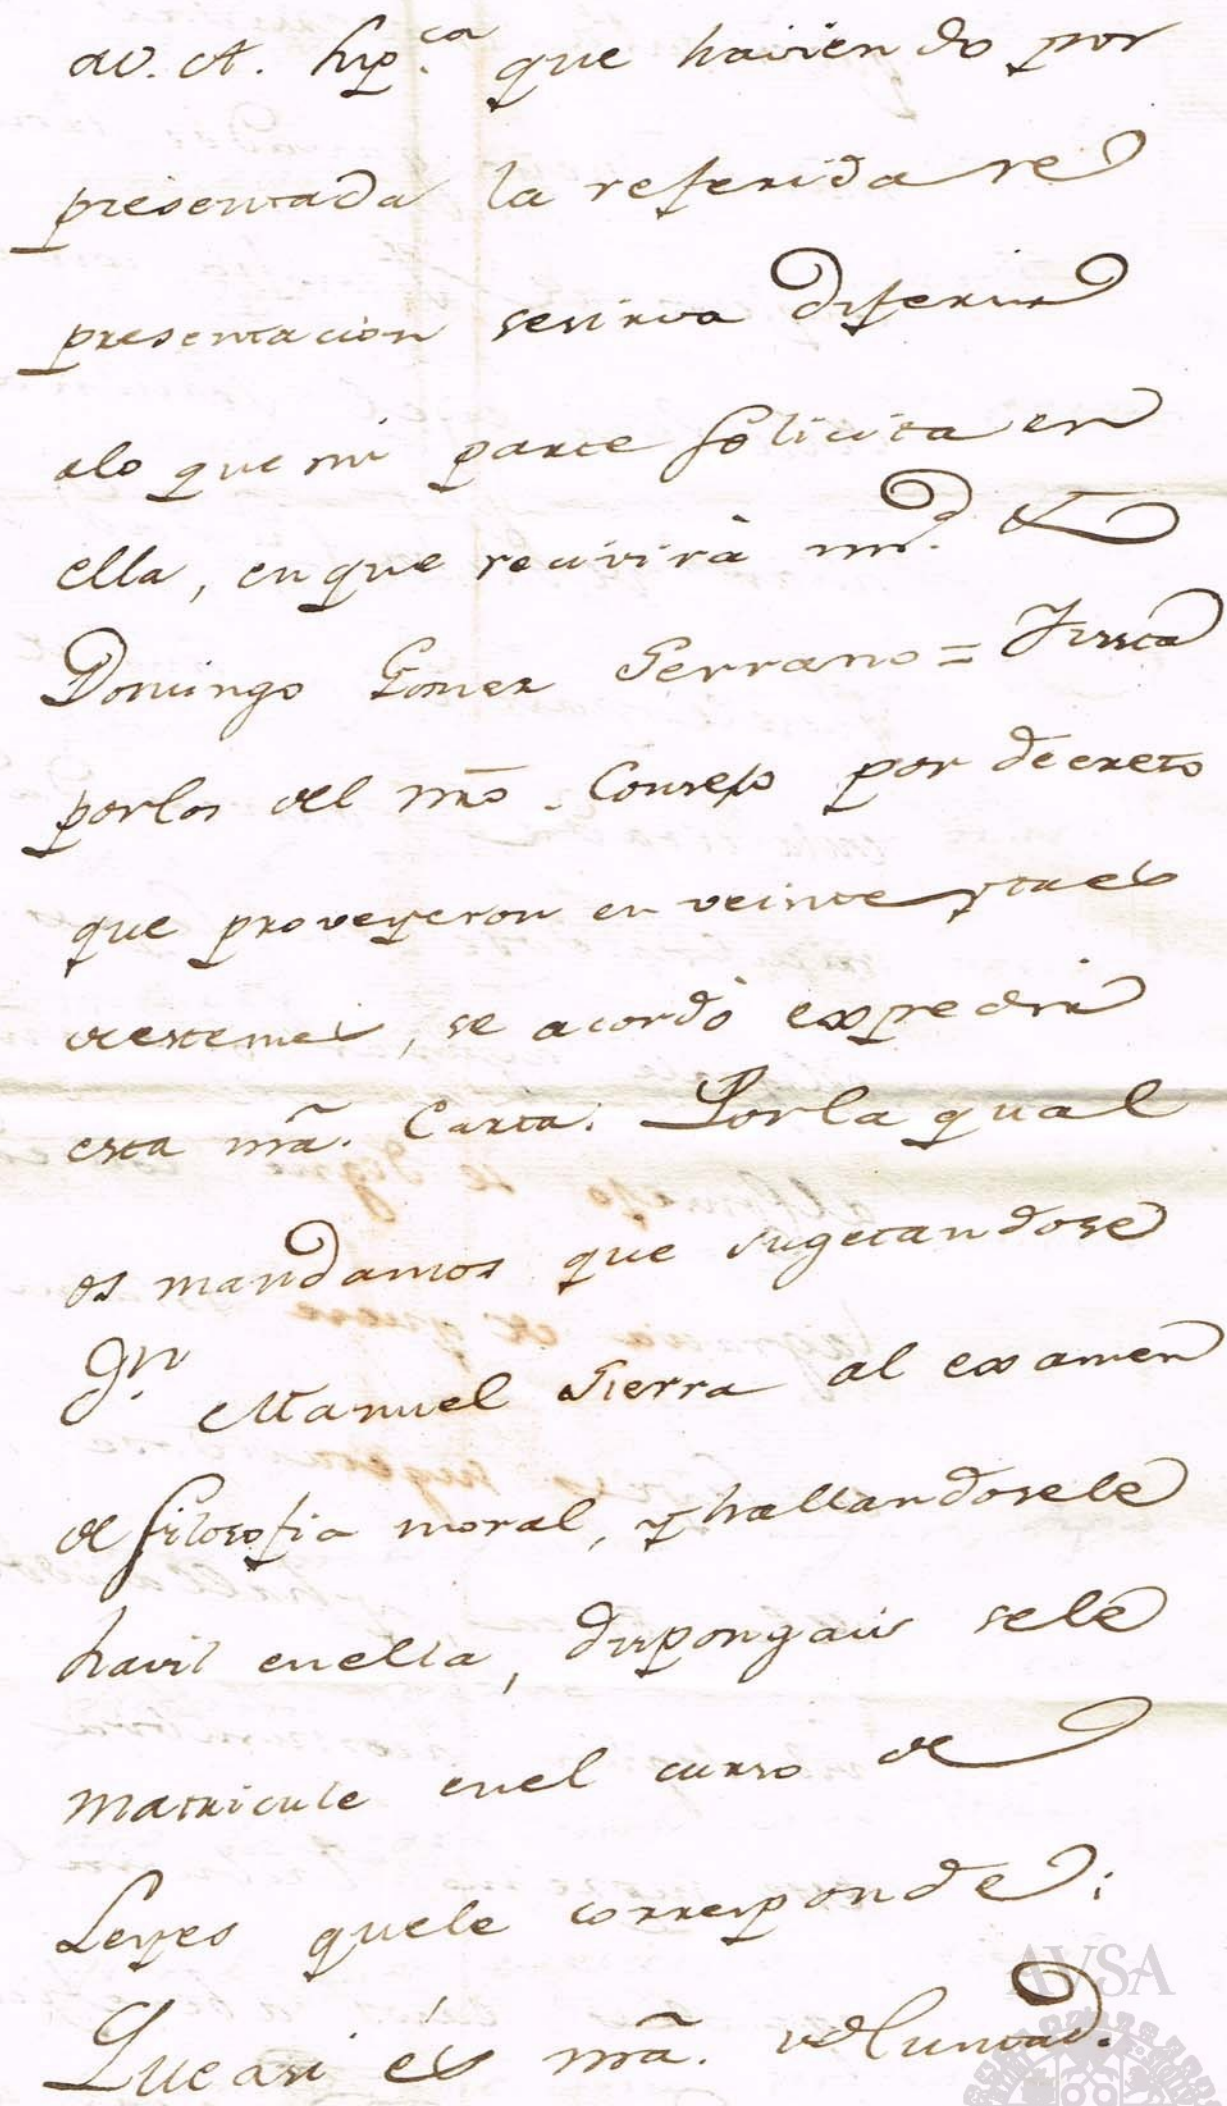 a V. A. sup.ca que haviendo por
presentada la referida re
presentacion sesirva diferir
alo que mi parte solicita en
ella, en que recivirà mrd. &
Domingo Gomez Serrano = Y vista
porlos del nrõ. Consejo por decreto
que proveyeron en veinte ytres
deestemes, se acordò expedir
esta nrã. Carta. Porla qual
os mandamos que sugetandose
Dn. Manuel Sierra al examen
de filosofia moral, y hallandosele
havil enella, dispongais sele
matricule enel curso de
Leyes quele corresponde;
Que asi és nrã. voluntad.
AVSA